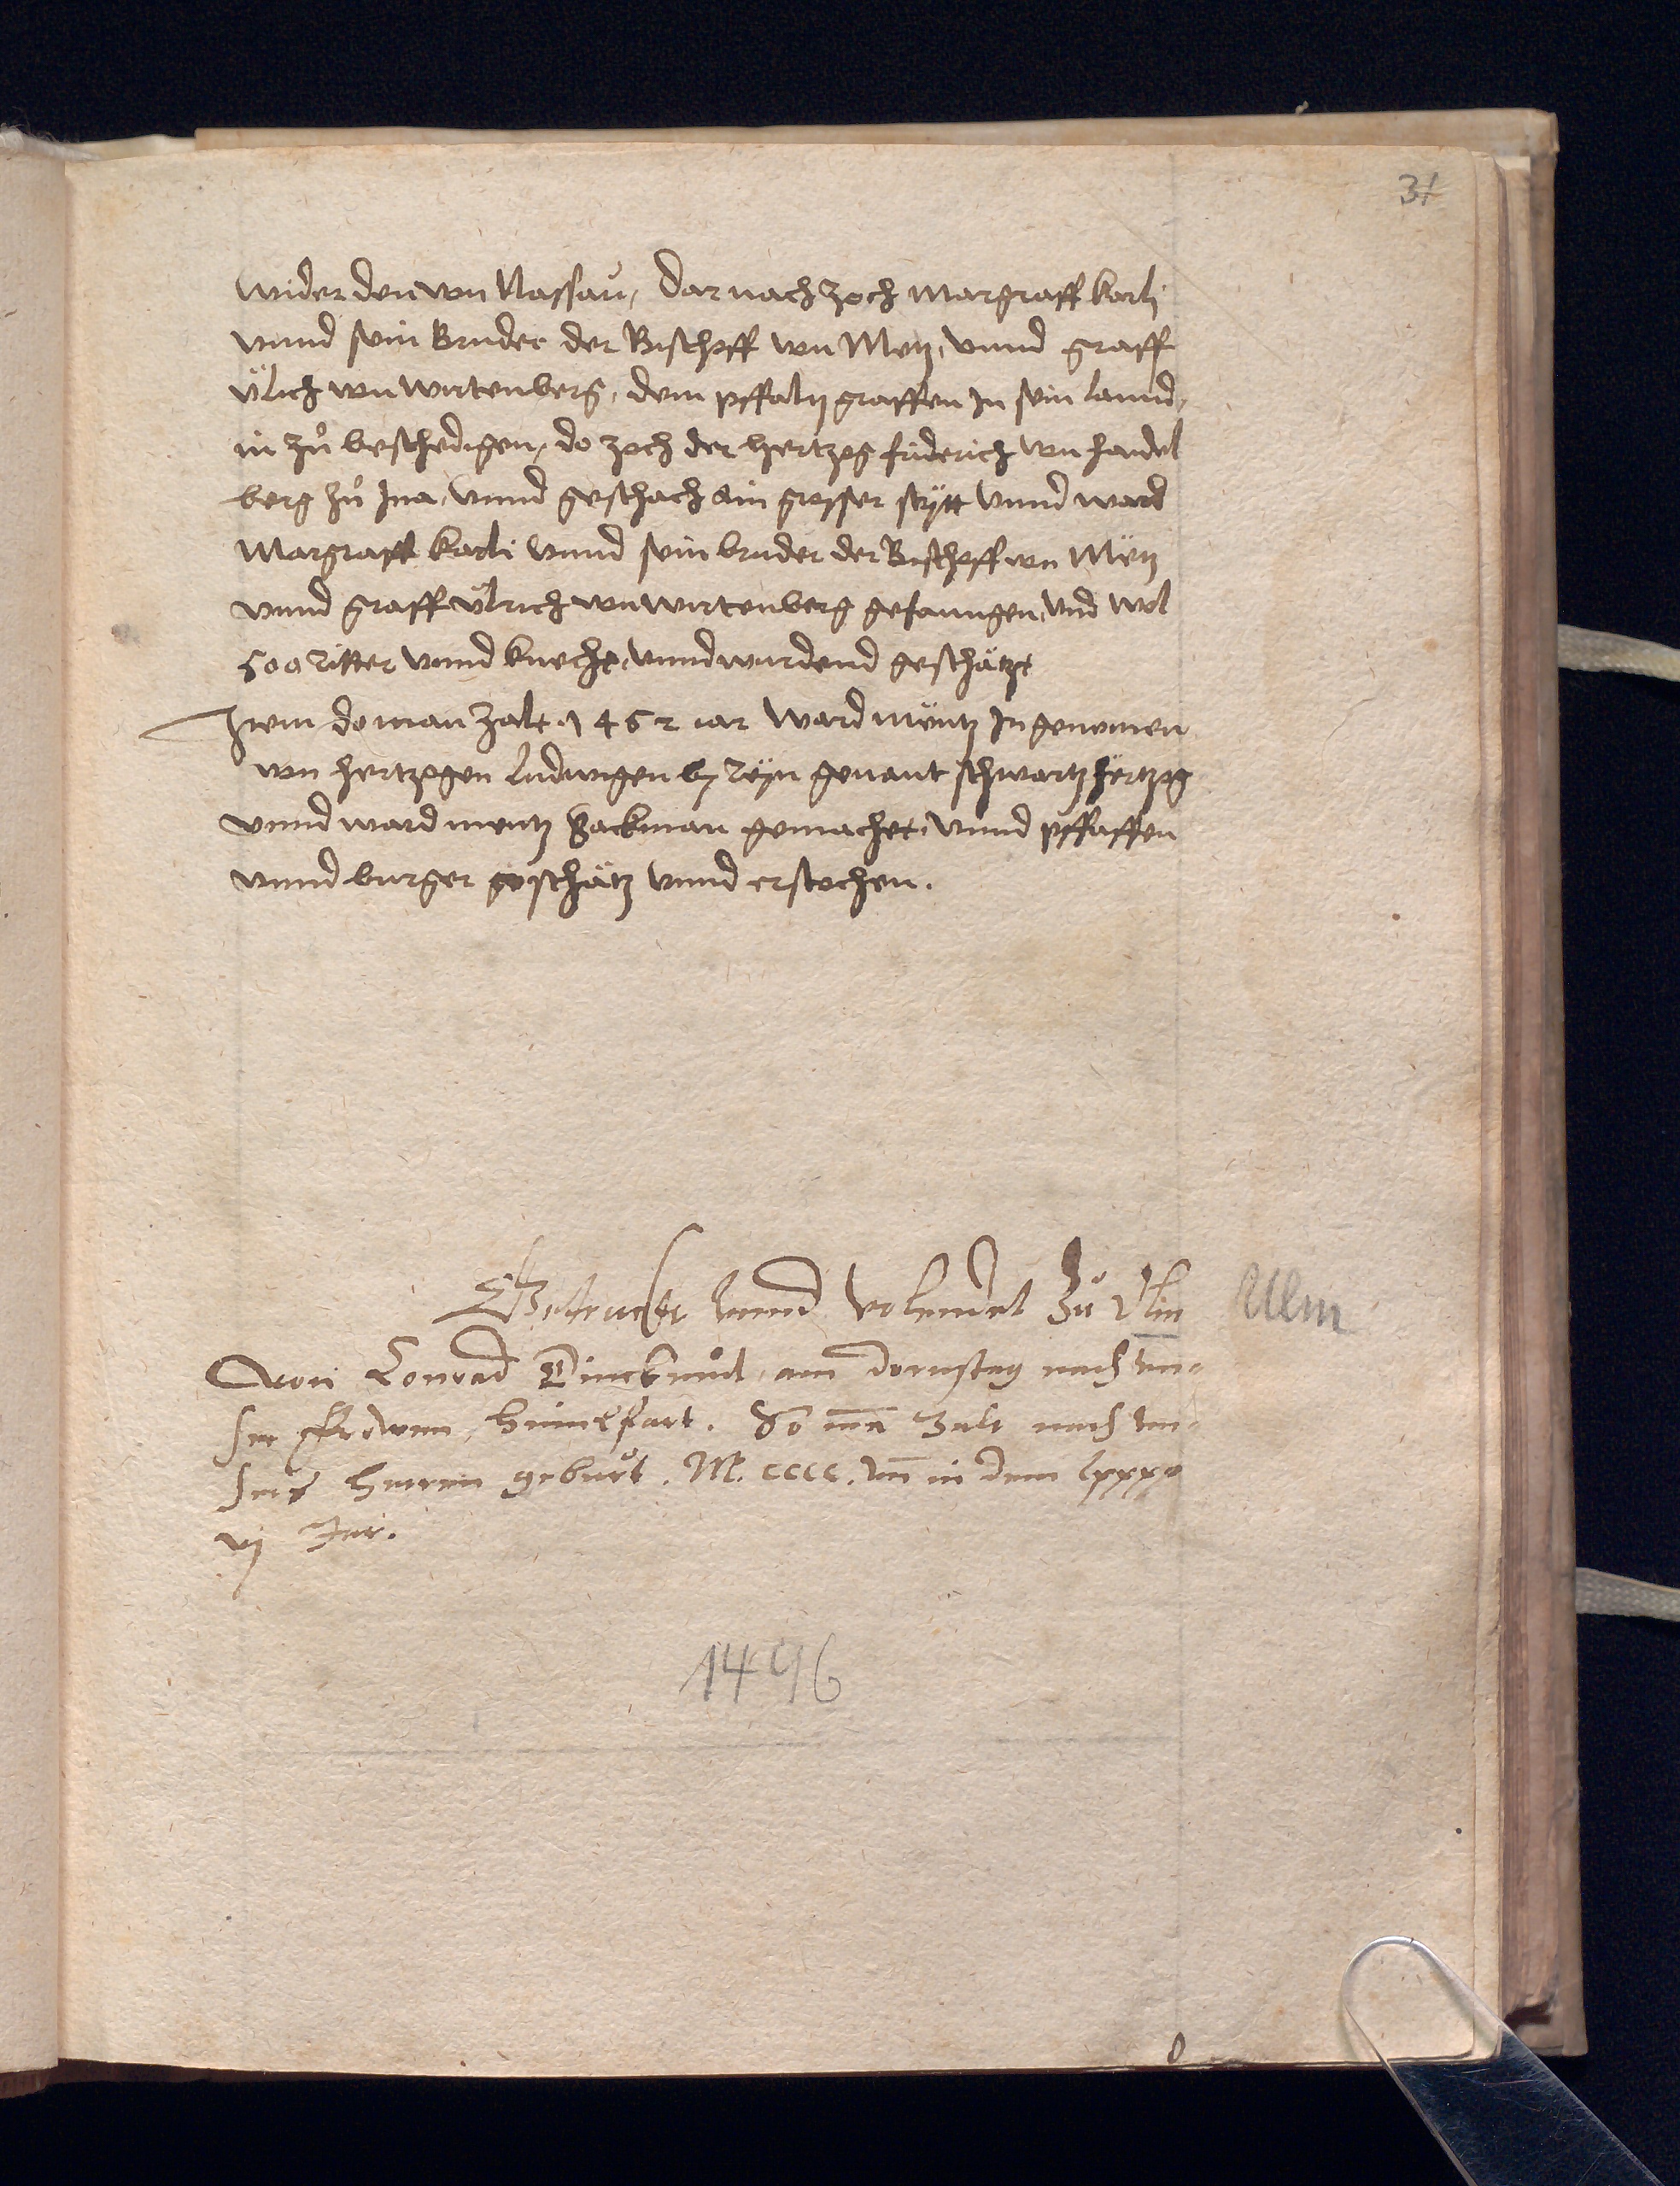 31
wider den von Nassau, Dar nach zoch Margraff karli
vnnd sein Bruder der Bischoff von Metz, vnnd graff
ülich von wirtenberg, dem pffaltzgraffen in sein lannd,
in zů beschedigen, do zoch der hertzog friderich von haidel
berg zů Ina, vnnd geschach ain grosser strytt vnnd ward
Margraff karli vnnd sein bruder der Bischoff von Mëtz
vnnd graff ůlrich von wirtenberg gefanngen, vnd wol
500 ritter vnnd knecht, vnnd wurdend geschätzt
Item do man zalt 1462 iar ward mëntz Ingenomen
von hertzogen Ludwigen by Reyn genant schwartzhertzog
vnnd ward mentz Sackman gemachet, vnnd pffaffen
vnnd burger geschätz vnnd erstochen.
Getruckt vnnd volendet zů Vlm Ulm
Von Conrad Dinckmůt, am dornstag nach vn-
ser ffrowen himelfart. Do mā zalt nach vn-
sers herren gebůrt. M. cccc. vn̄ in dem lxxxx
vj Jar.
1496